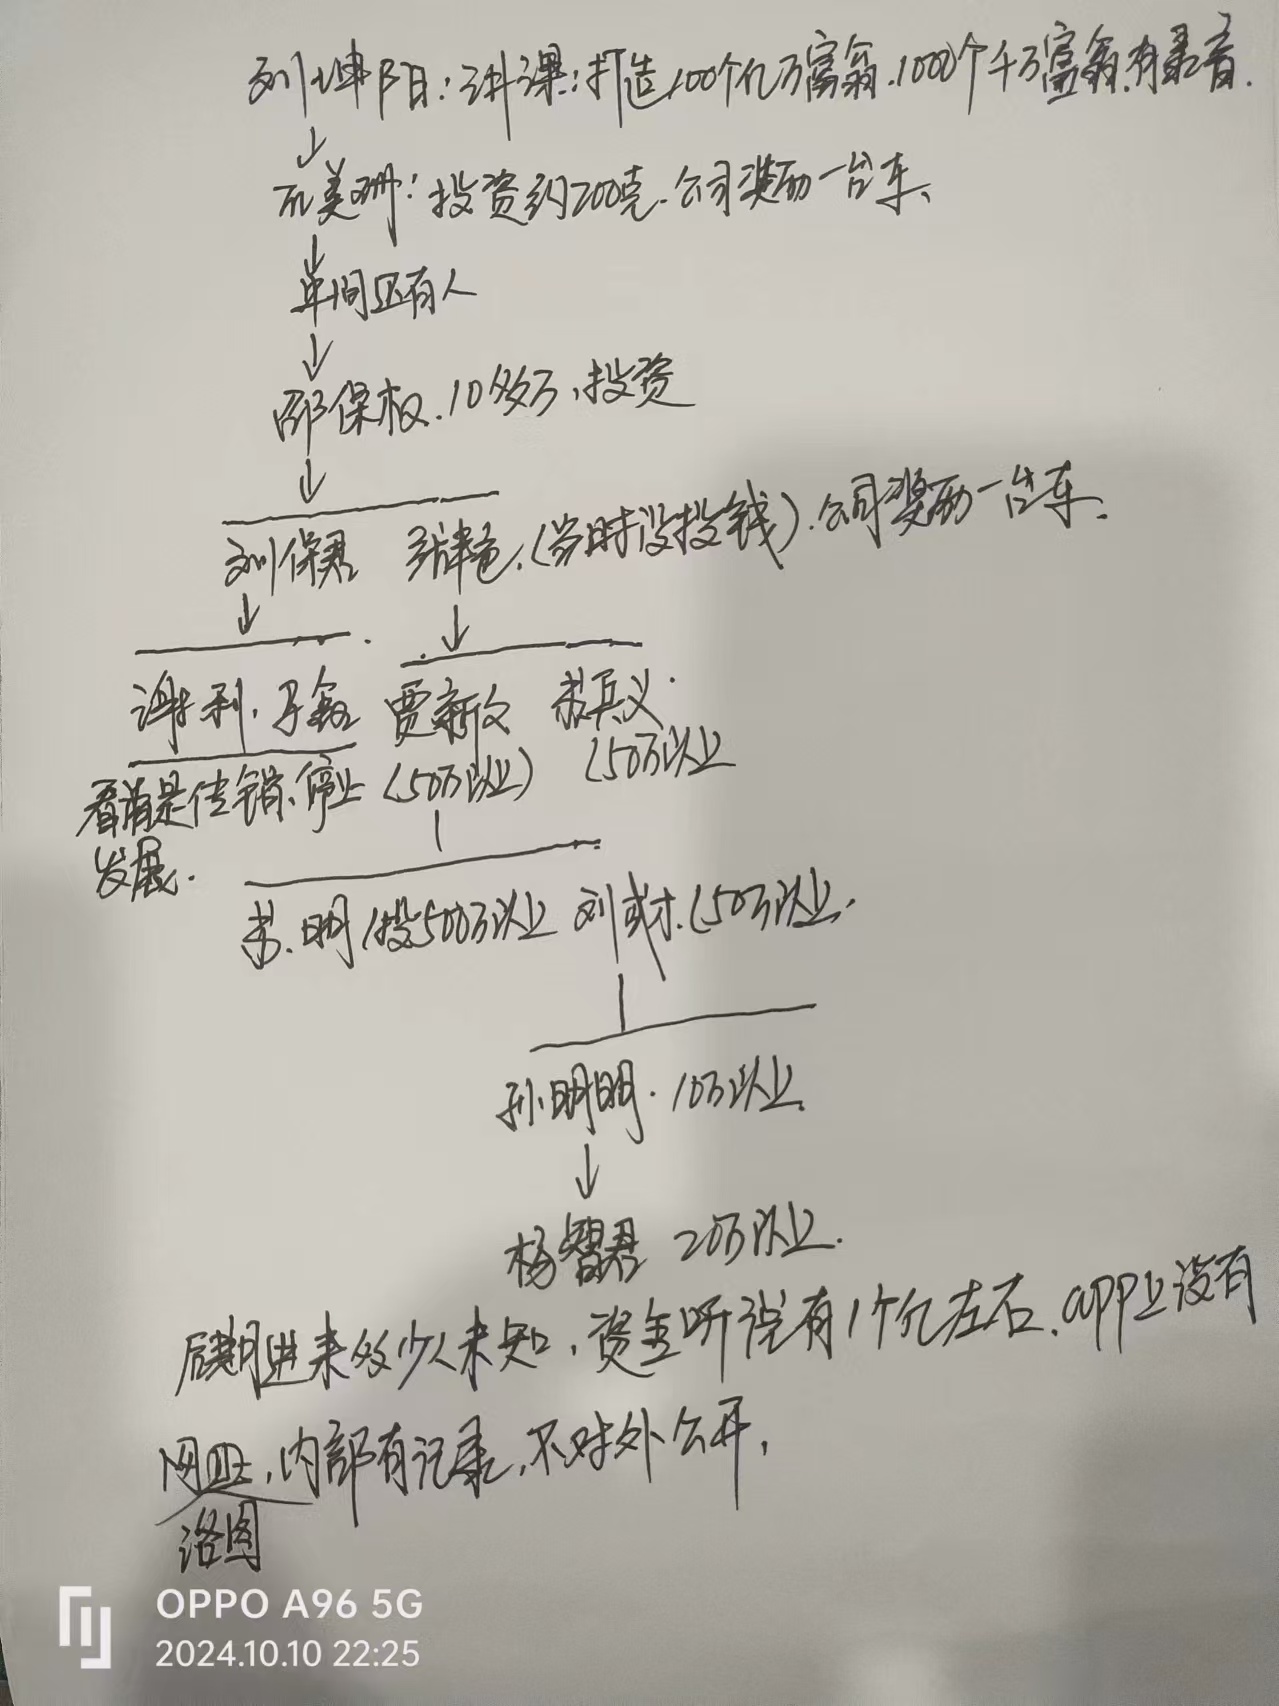 刘坤阳：讲课：打造100个亿万富翁.1000个千万富翁.有录音.
美珊：投资约200克.公司奖励一台车、
单间还有人
邵保权.10多万、投资
刘保君 (当时没投钱).公司奖励一台车.
谢利. 贾新文 苏兵义.
看清是传销、停止 (50万以上) (50万以上
发展.
苏.明(投500万以上 刘成才.(50万以上.
孙明明.10万以上.
杨智君 20万以上.
后期进来多少人未知，资金听说有1个亿左右.app上没有
网 ，内部有记录，不对外公开，
洛图
OPPO A96 5G
2024.10.10 22:25